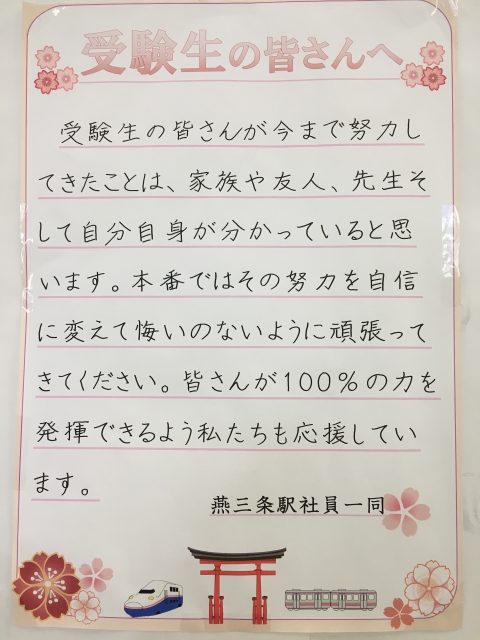 受験生の皆さんへ
受験生の皆さんが今まで努力し
てきたことは、家族や友人、先生そ
して自分自身が分かっていると思
います。本番ではその努力を自信
に変えて悔いのないように頑張って
きてください。皆さんが100%の力を
発揮できるよう私たちも応援してい
ます。
燕三条駅社員一同